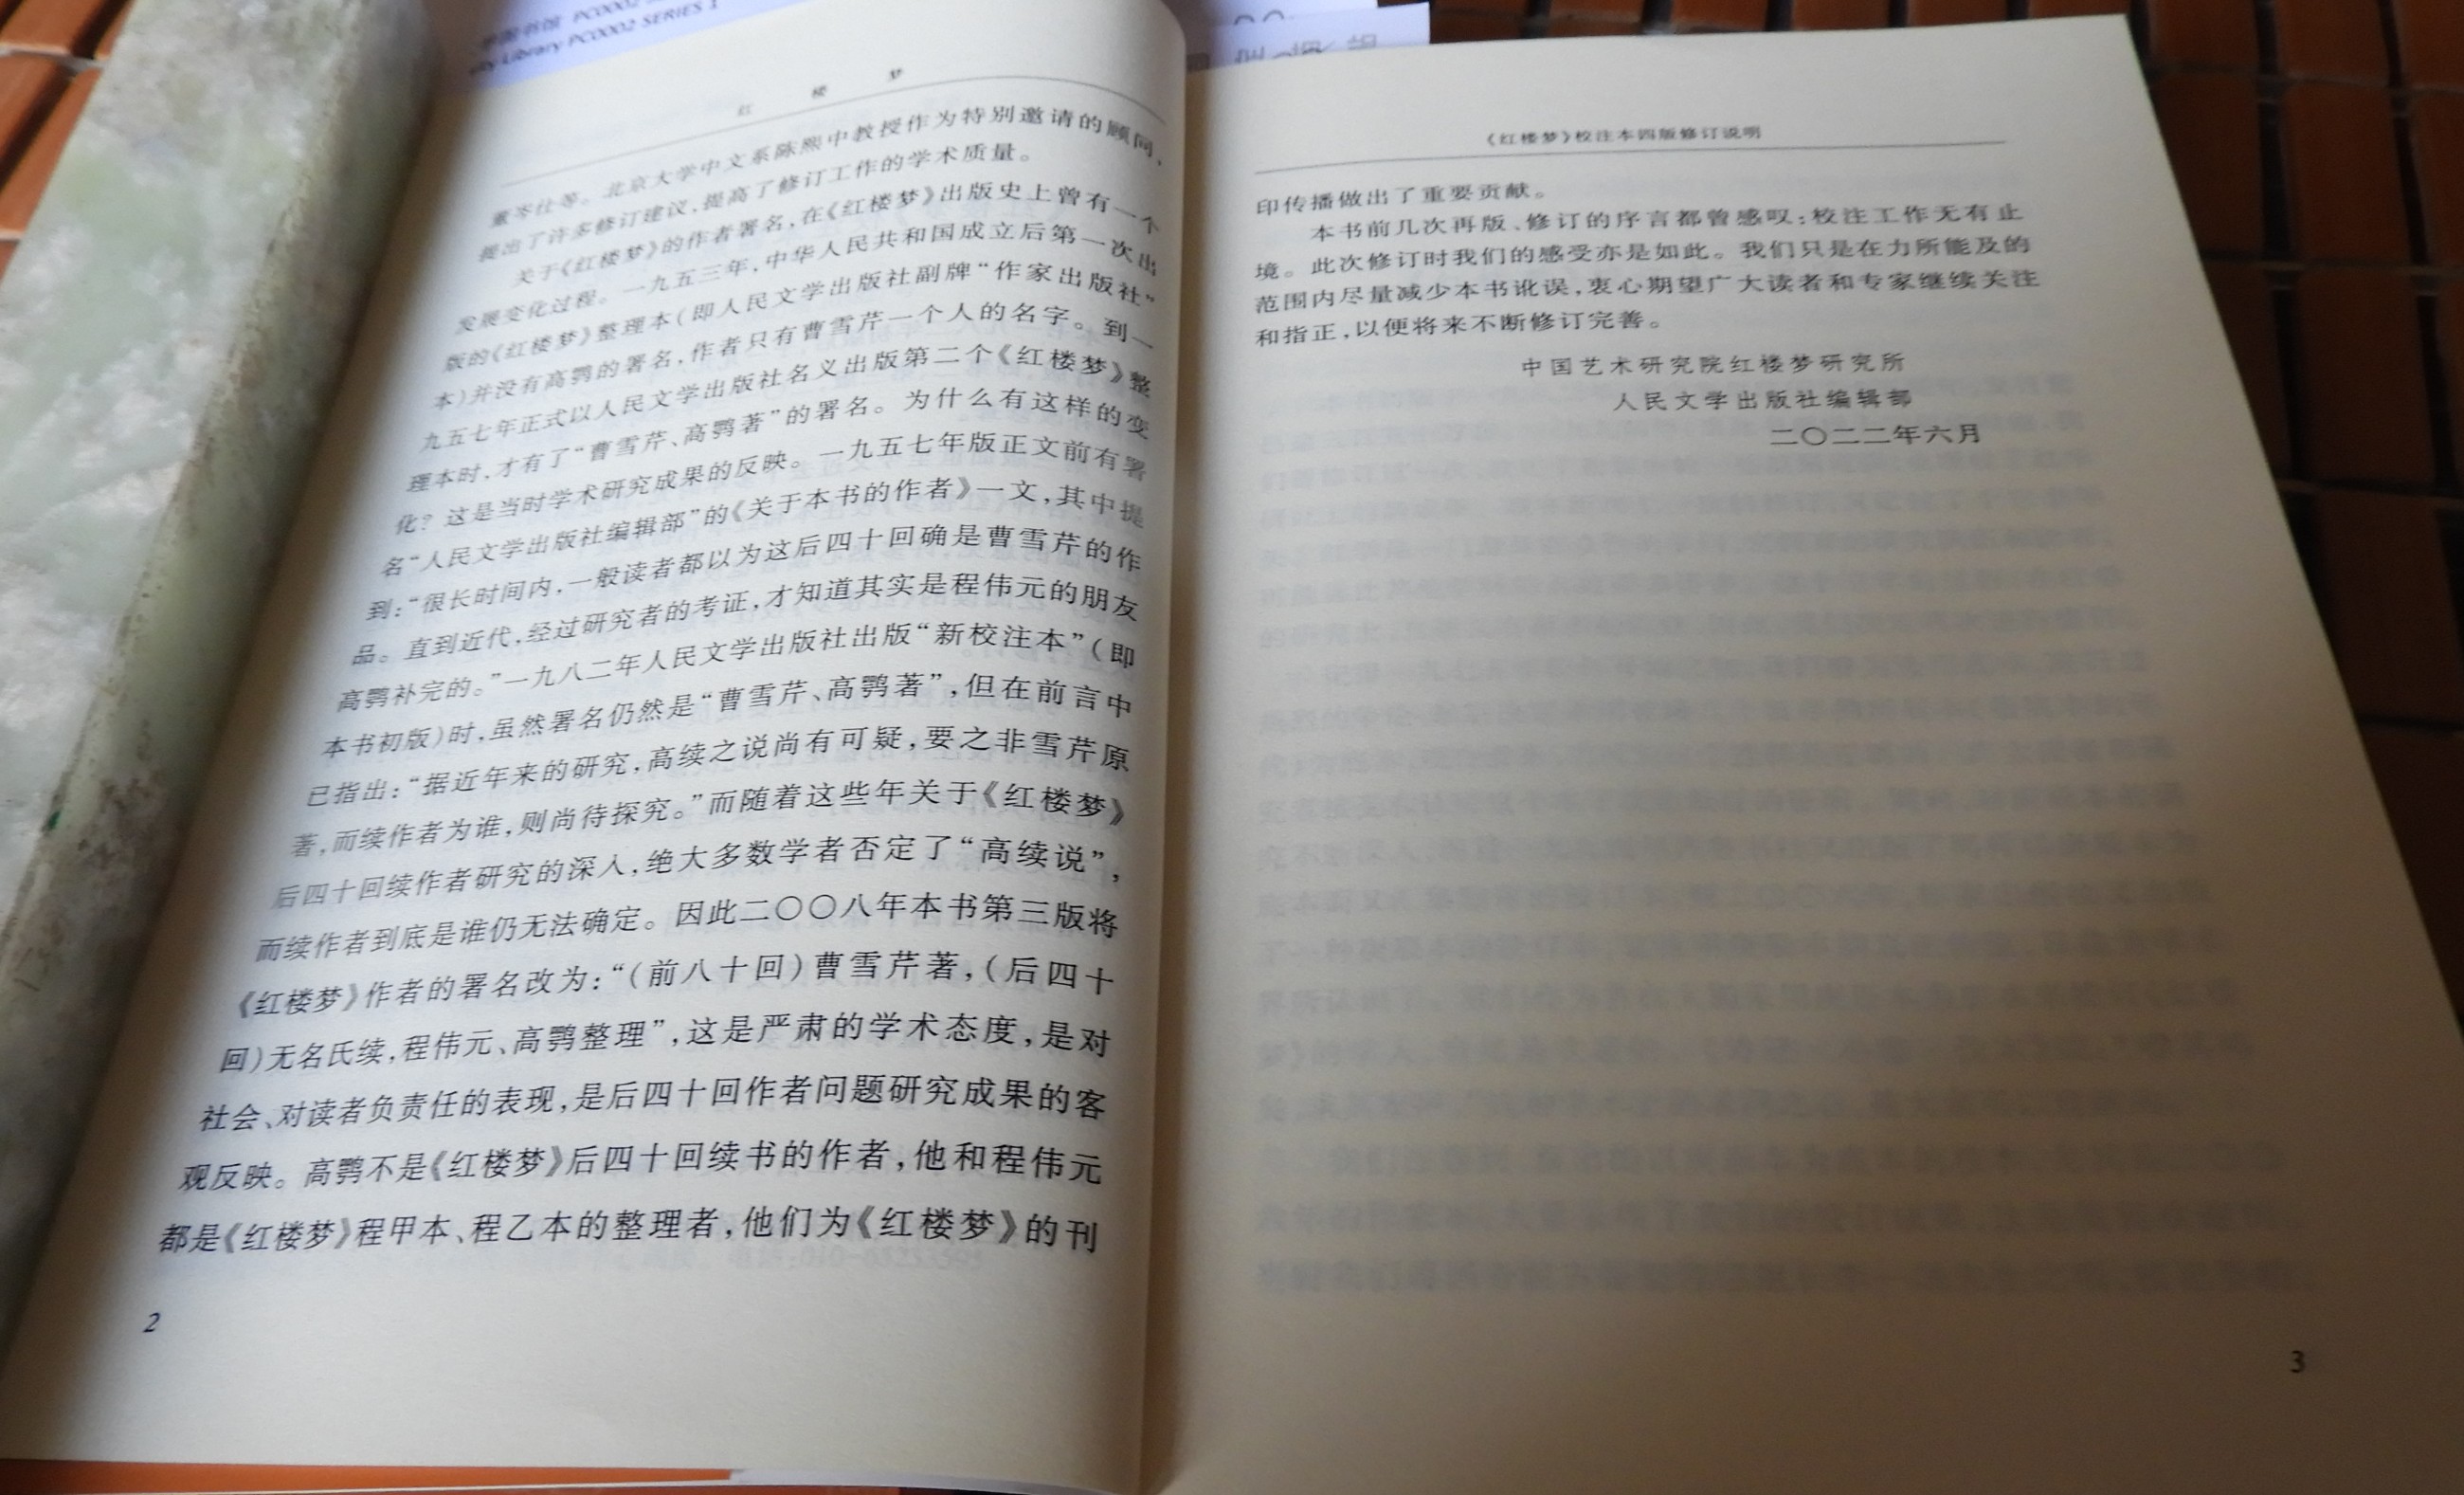 书馆 PC0002
Library PC0002 SERIES 1
红 楼 梦
董岑仕等。北京大学中文系陈熙中教授作为特别邀请的顾问，
提出了许多修订建议，提高了修订工作的学术质量。
关于《红楼梦》的作者署名，在《红楼梦》出版史上曾有一个
发展变化过程。一九五三年，中华人民共和国成立后第一次出
版的《红楼梦》整理本（即人民文学出版社副牌“作家出版社”
本）并没有高鹗的署名，作者只有曹雪芹一个人的名字。到一
九五七年正式以人民文学出版社名义出版第二个《红楼梦》整
理本时，才有了“曹雪芹、高鹗著”的署名。为什么有这样的变
化？这是当时学术研究成果的反映。一九五七年版正文前有署
名“人民文学出版社编辑部”的《关于本书的作者》一文，其中提
到：“很长时间内，一般读者都以为这后四十回确是曹雪芹的作
品。直到近代，经过研究者的考证，才知道其实是程伟元的朋友
高鹗补完的。”一九八二年人民文学出版社出版“新校注本”（即
本书初版）时，虽然署名仍然是“曹雪芹、高鹗著”，但在前言中
已指出：“据近年来的研究，高续之说尚有可疑，要之非雪芹原
著，而续作者为谁，则尚待探究。”而随着这些年关于《红楼梦》
后四十回续作者研究的深入，绝大多数学者否定了“高续说”，
而续作者到底是谁仍无法确定。因此二〇〇八年本书第三版将
《红楼梦》作者的署名改为：“（前八十回）曹雪芹著，（后四十
回）无名氏续，程伟元、高鹗整理”，这是严肃的学术态度，是对
社会、对读者负责任的表现，是后四十回作者问题研究成果的客
观反映。高鹗不是《红楼梦》后四十回续书的作者，他和程伟元
都是《红楼梦》程甲本、程乙本的整理者，他们为《红楼梦》的刊
2
《红楼梦》校注本四版修订说明
印传播做出了重要贡献。
本书前几次再版、修订的序言都曾感叹：校注工作无有止
境。此次修订时我们的感受亦是如此。我们只是在力所能及的
范围内尽量减少本书讹误，衷心期望广大读者和专家继续关注
和指正，以便将来不断修订完善。
中国艺术研究院红楼梦研究所
人民文学出版社编辑部
二〇二二年六月
3